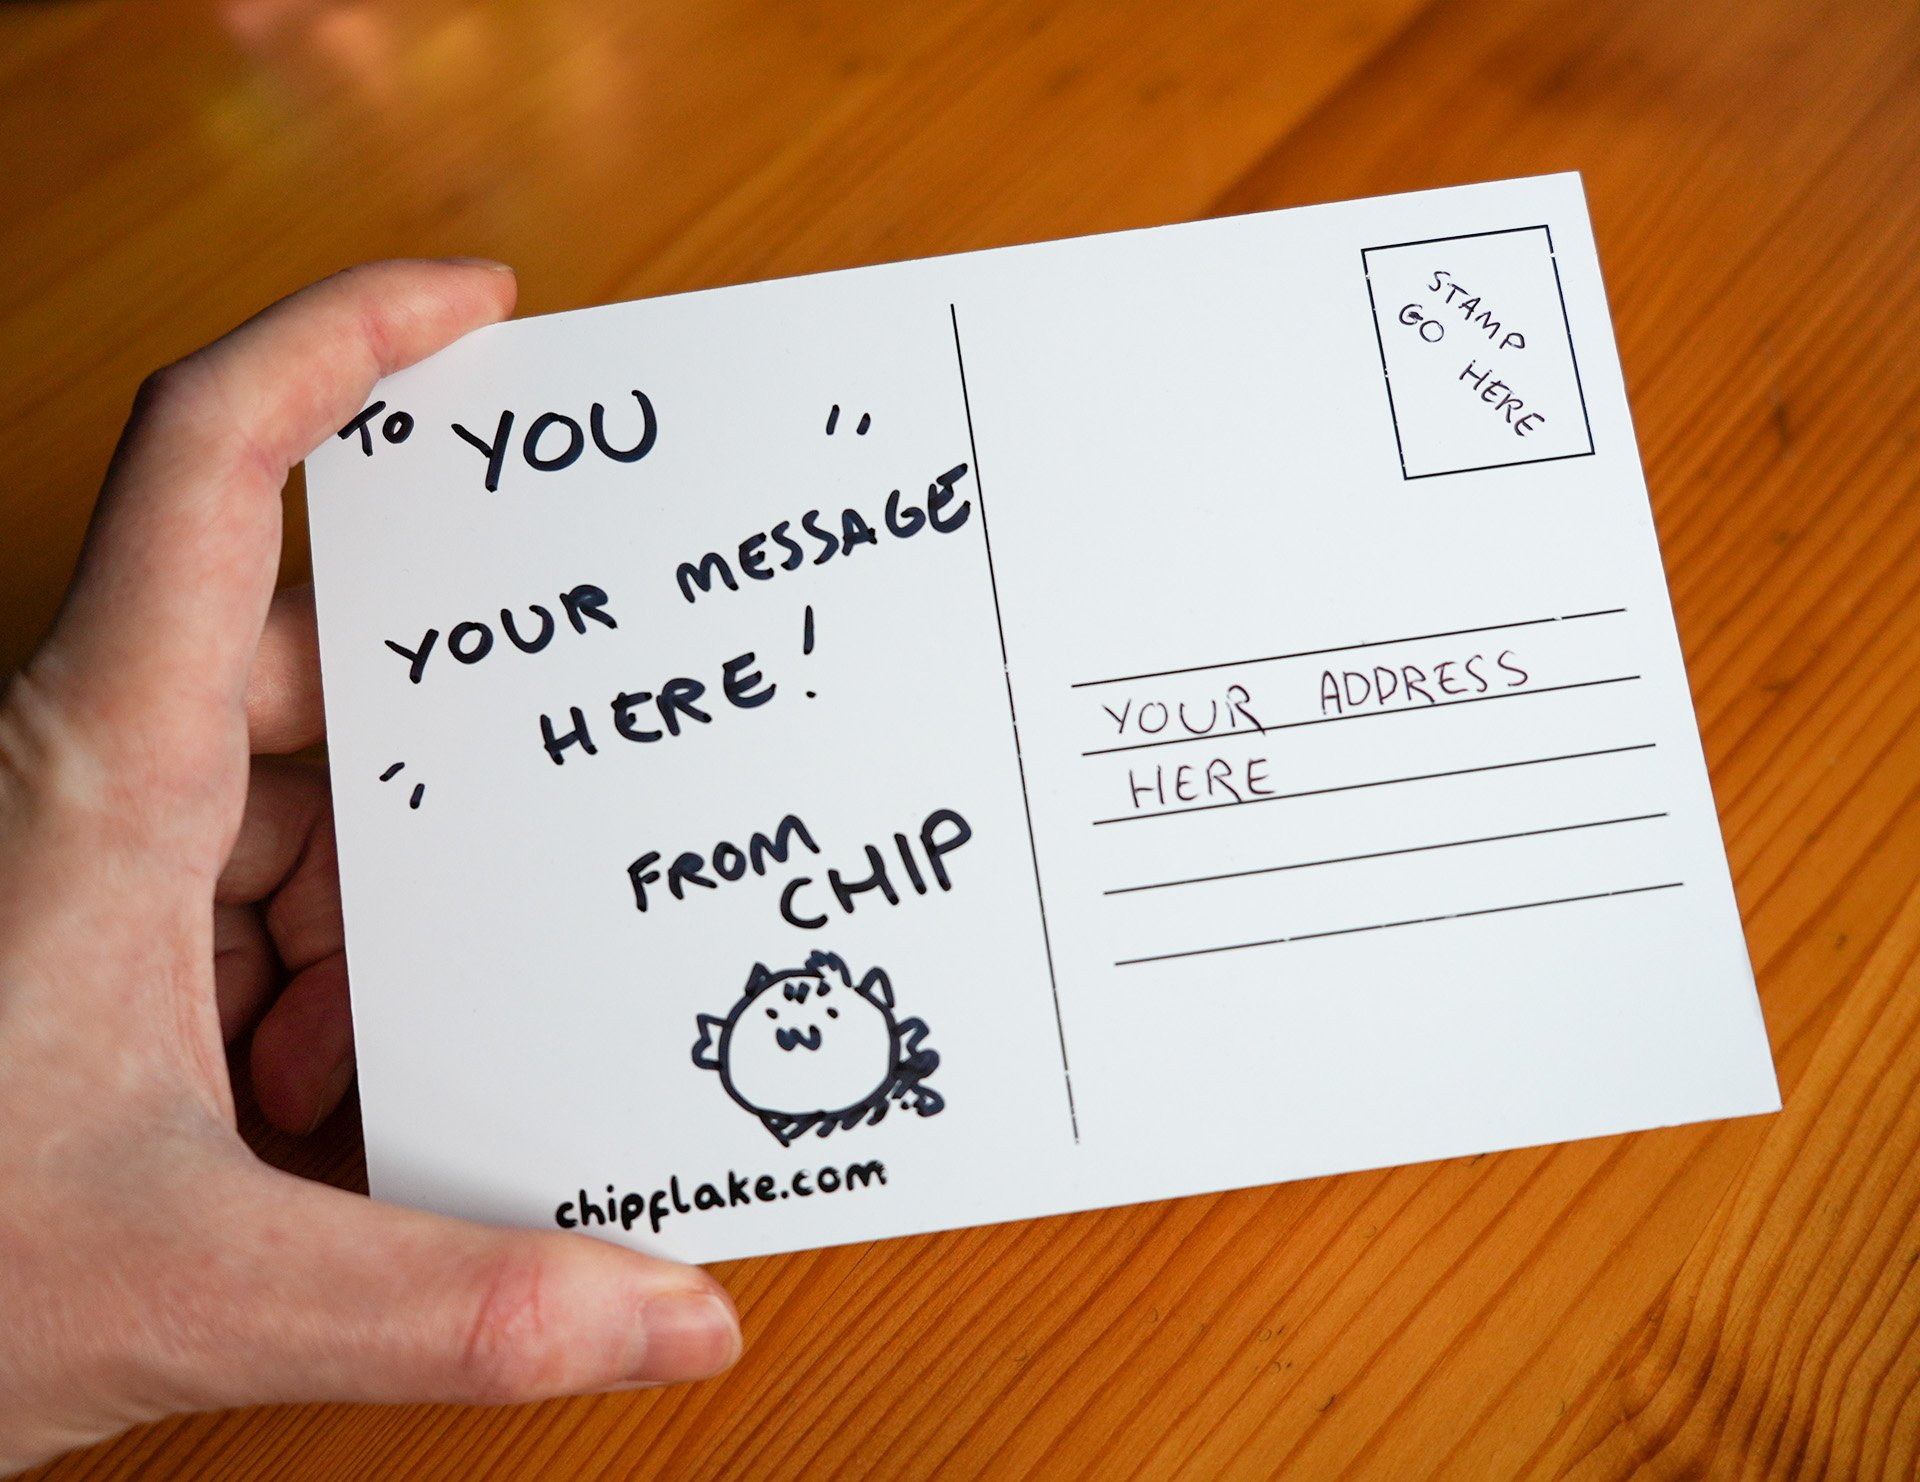 TO YOU
YOUR MESSAGE
HERE!
FROM
CHIP
chipflake.com
STAMP
GO HERE
YOUR ADDRESS
HERE